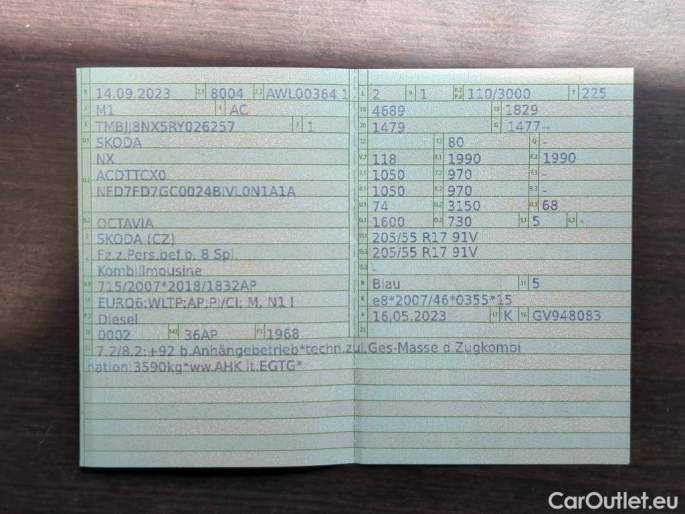 14.09.2023 8004 AWL00364 1
M1 AC
TMBJJ8NX5RY026257 1
SKODA
NX
ACDTTCX0
NFD7FD7GC0024BJVL0N1A1A
OCTAVIA
SKODA (CZ)
Fz.z.Pers.bef.b. 8 Spl.
Kombilimousine
715/2007*2018/1832AP
EURO6;WLTP;AP;PI/CI; M, N1 I
Diesel
0002 36AP 1968
2 1 110/3000 225
4689 1829
1479 1477--
80 -
118 1990 1990
1050 970 -
1050 970 -
74 3150 68
1600 730 5 -
205/55 R17 91V
205/55 R17 91V
-
Blau 5
e8*2007/46*0355*15
16.05.2023 K GV948083
7.2/8.2:+92 b.Anhängebetrieb*techn.zul.Ges-Masse d Zugkombi
nation:3590kg*ww.AHK lt.EGTG*
CarOutlet.eu